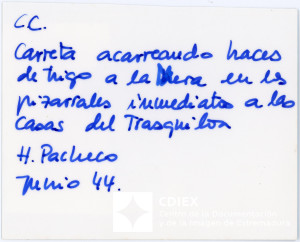 C.C.
Carreta acarreando haces
de trigo a la Mera en los
pizarrales inmediatos a las
casas del Trasquilon
H. Pacheco
Junio 44.
CDIEX